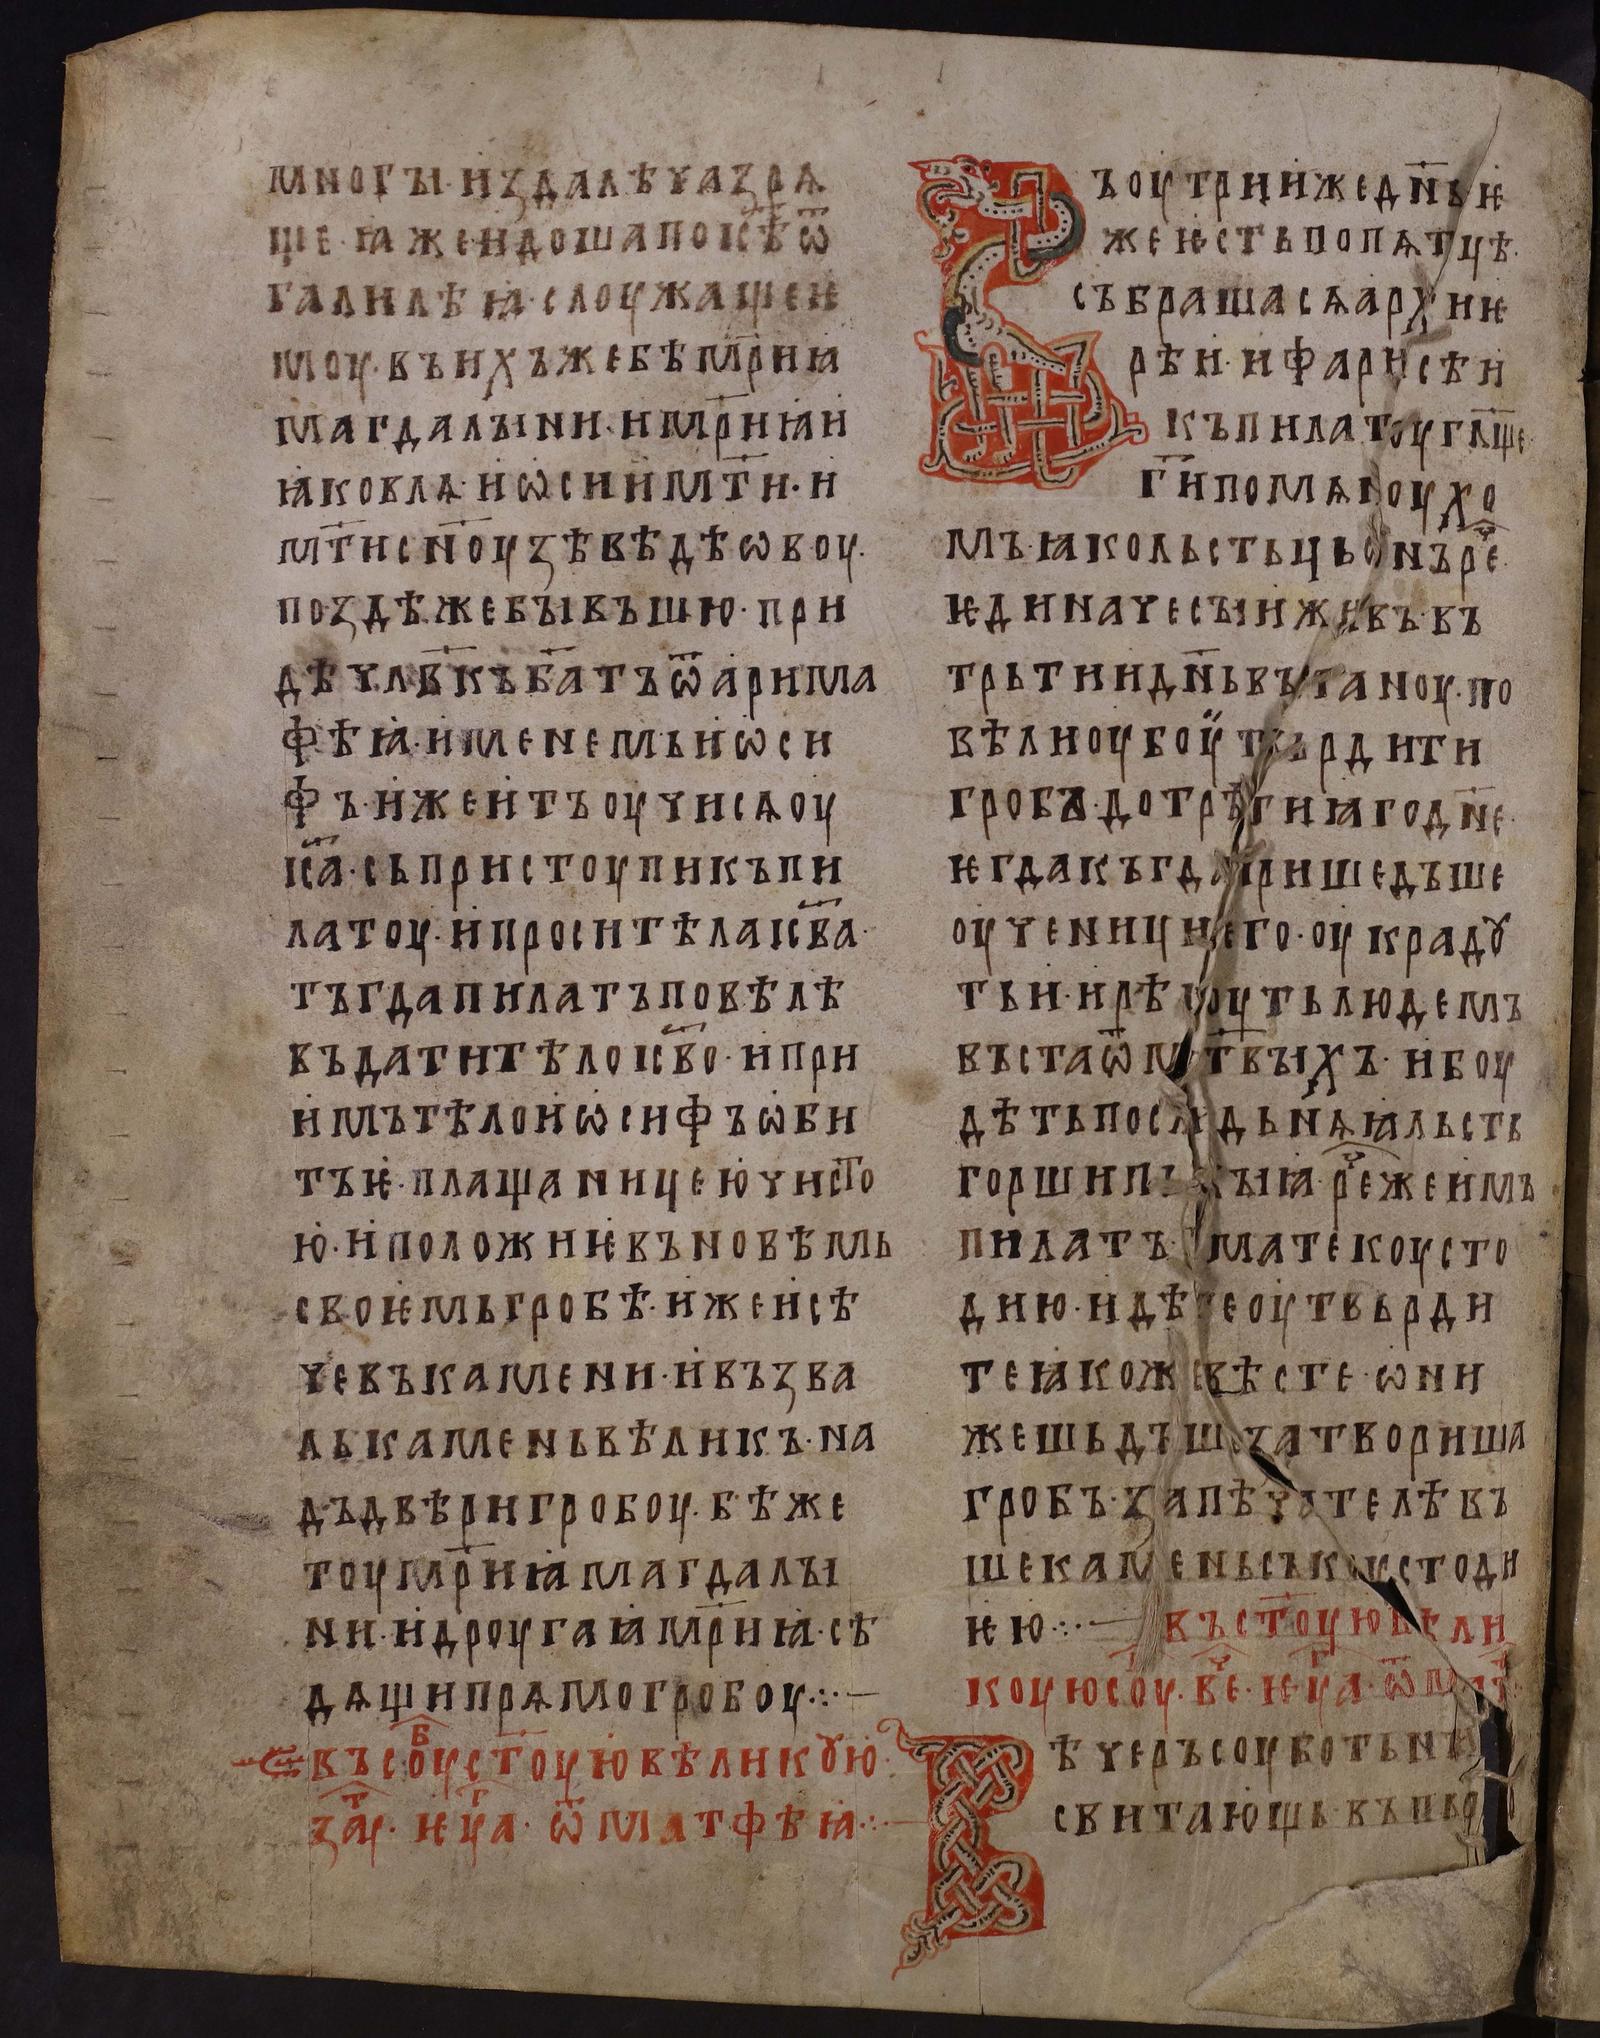 многы·издалѣчазрѧ
ще·ꙗжендошапоі҃сѣѿ
галилѣꙗ·слоужащеѥ
моу·въниⷯъжебѣмр҃иꙗ
магдалыни·имр҃иꙗи
ꙗковлѧ·иѡсиимт҃и·и
мт҃исн҃оузѣвѣдѣѡвоу·
поздѣжебывъшю·при
дѣчл҃вкъб҃атъѿарима
фѣꙗ·именемьиѡси
фъ·ижеитъоучисѧоу
і҃са·сьпристоупикъпи
латоу·ипроситѣлаі҃сва·
тъгдапилатъповѣлѣ
въдатитѣлоі҃сво·ипри
имътѣлоиѡсифъѡби
тъѥ·плащаницеючисто
ю·иположиѥвъновѣмь
своѥмьгробѣ·ижеисѣ
чевъкамени·ивъзва
лькаменьвѣликъ·на
дъдвѣригробоу·бѣже
тоумр҃иꙗмагдалы
ни·идроугаꙗмр҃иꙗ·сѣ
дѧщипрѧмогробоу·:·—
въсоⷠустоуювѣликꙋю·
заⷱ҇·ѥу҃а·ѿматфѣꙗ·:·—
Ъоутриижедн҃ьѥ
жеѥстьпопѧтцѣ·
събрашасѧархиѥ
рѣи·ифарисѣи
къпилатоугл҃ще·
ги҃помѧноухо
мъ·ꙗкольстьцьонъреⷱ҇
ѥдиначесыиживъ·въ
трьтиидн҃ьвъстаноу·по
вѣлиоубоутвьрдити
гроба·дотрѣтиꙗгодн҃е·
ѥгдакъгдапришедъше
оученициѥго·оукрадꙋ
тьи·ирѣкоутьлюдемъ
въстаѿмр҃твыхъ·ибоу
дѣтьпослѣдьнѧꙗльсть
горшипьрвыꙗ·реⷱ҇жеимъ
пилатъ·иматекоусто
дию·идѣтеоутвьрди
теꙗкожевѣсте·ѡни
жешьдъшезатвориша
гробъ·запѣчателѣвъ
шекаменьськоустоди
ѥю·:·—въст҃оуювели
коуюсоуⷠ·веⷱ҇·ѥуⷢ҇а·ѿмаⷮ
Ѣчеръсоуботьныи
свитающь·въпьр